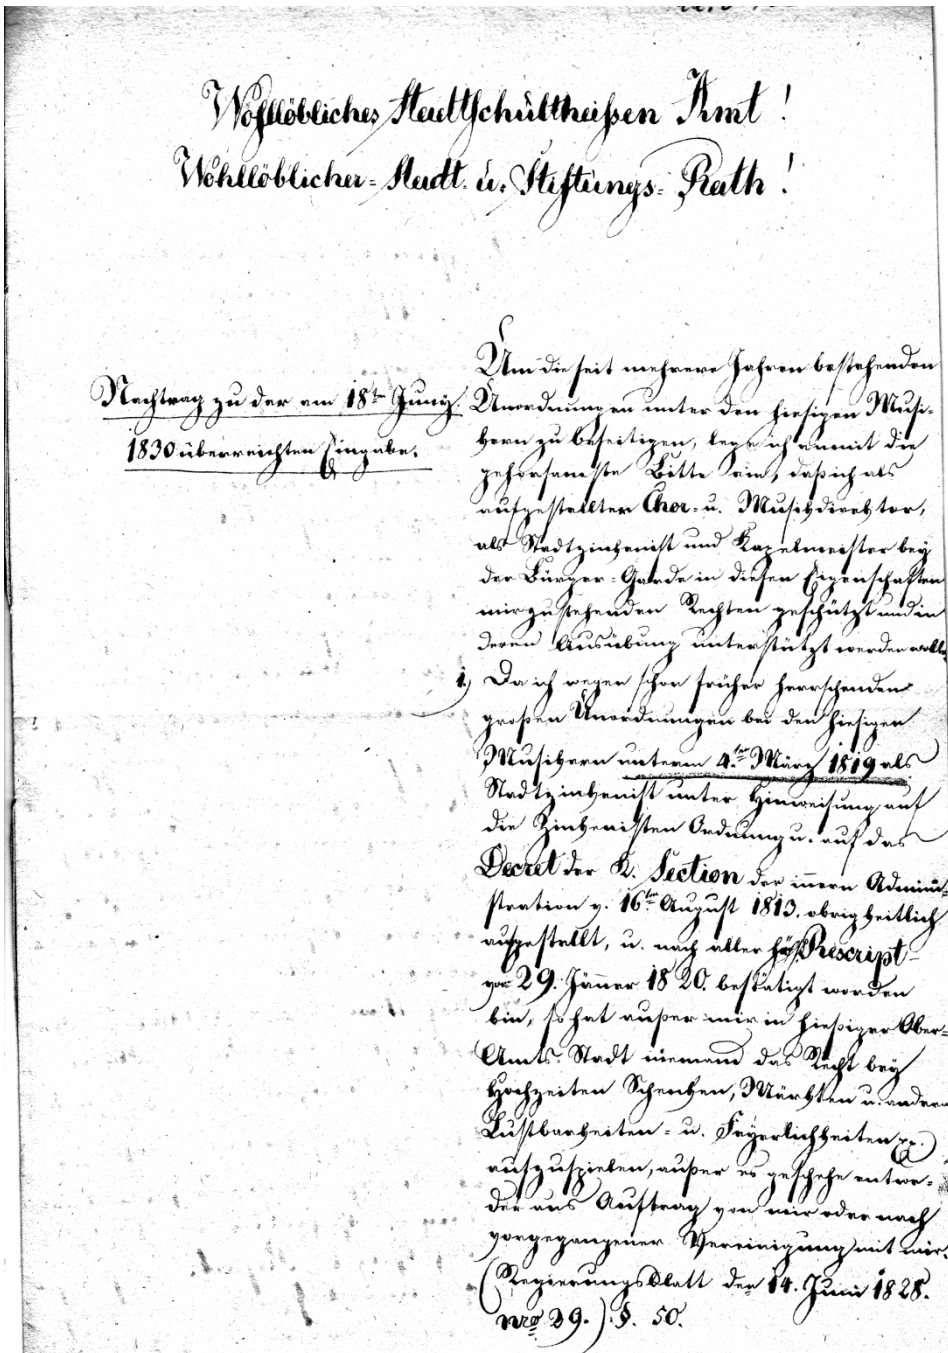 Wohllöbliches Stadtschultheißen Amt!
Wohllöblicher = Stadt- u. Stiftungs- Rath!
Nachtrag zu der am 18ten Juny
1830 überreichten Eingabe.
Um die seit mehrere Jahren bestehenden
Unordnungen unter den hiesigen Musi-
kern zu beseitigen, lege ich anmit die
gehorsamste Bitte ein, daß ich als
aufgestellter Chor- u. Musikdirektor,
als Stadtzinkenist und Kapelmeister bey
der Bürger-Garde in diesen Eigenschaften
mir zustehenden Rechten geschützt und in
deren Ausübung unterstützt werden wolle
1.) Da ich wegen schon früher herrschenden
großen Unordnungen bei den hiesigen
Musikern unterm 4ten März 1819 als
Stadtzinkenist unter Hinweisung auf
die Zinkenisten Ordnung u. auf das
Decret der K. Section der innern Admini-
stration v. 16ten August 1813. obrigkeitlich
aufgestellt, u. nach aller höchst Rescript
von 29. Jänner 1820. bestätigt worden
bin, so hat außer mir in hiesiger Ober-
Amts-Stadt niemand das Recht bey
Hochzeiten Schenken, Märkten u. andern
Lustbarkeiten- u. Feyerlichkeiten
aufzuspielen, außer es geschehe entwe-
der aus Auftrag von mir oder nach
vorgegangener Vereinigung mit mir.
(Regierungsblatt den 14. Juni 1828.
Nro 39.) §. 50.